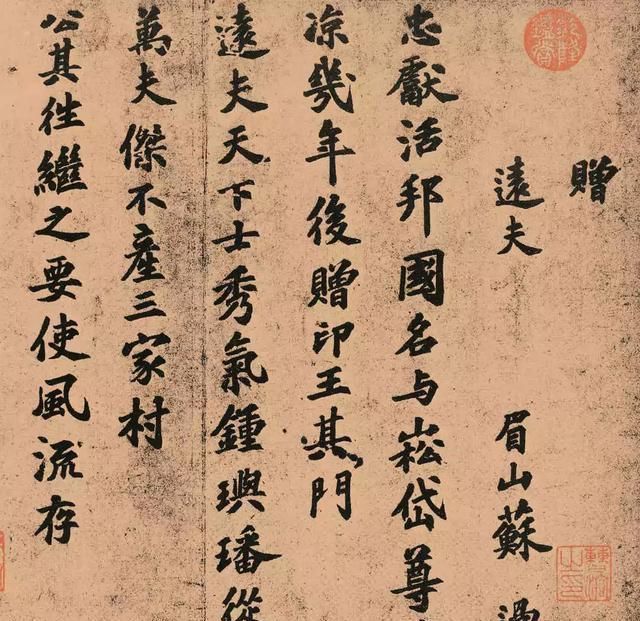 贈
遠夫 眉山蘇
忠獻活邦國名与崧岱尊
凉幾年後贈印王其門
遠夫天下士秀氣鍾璵璠從
萬夫傑不產三家村
公其徃繼之要使風流存
乾隆鑑賞